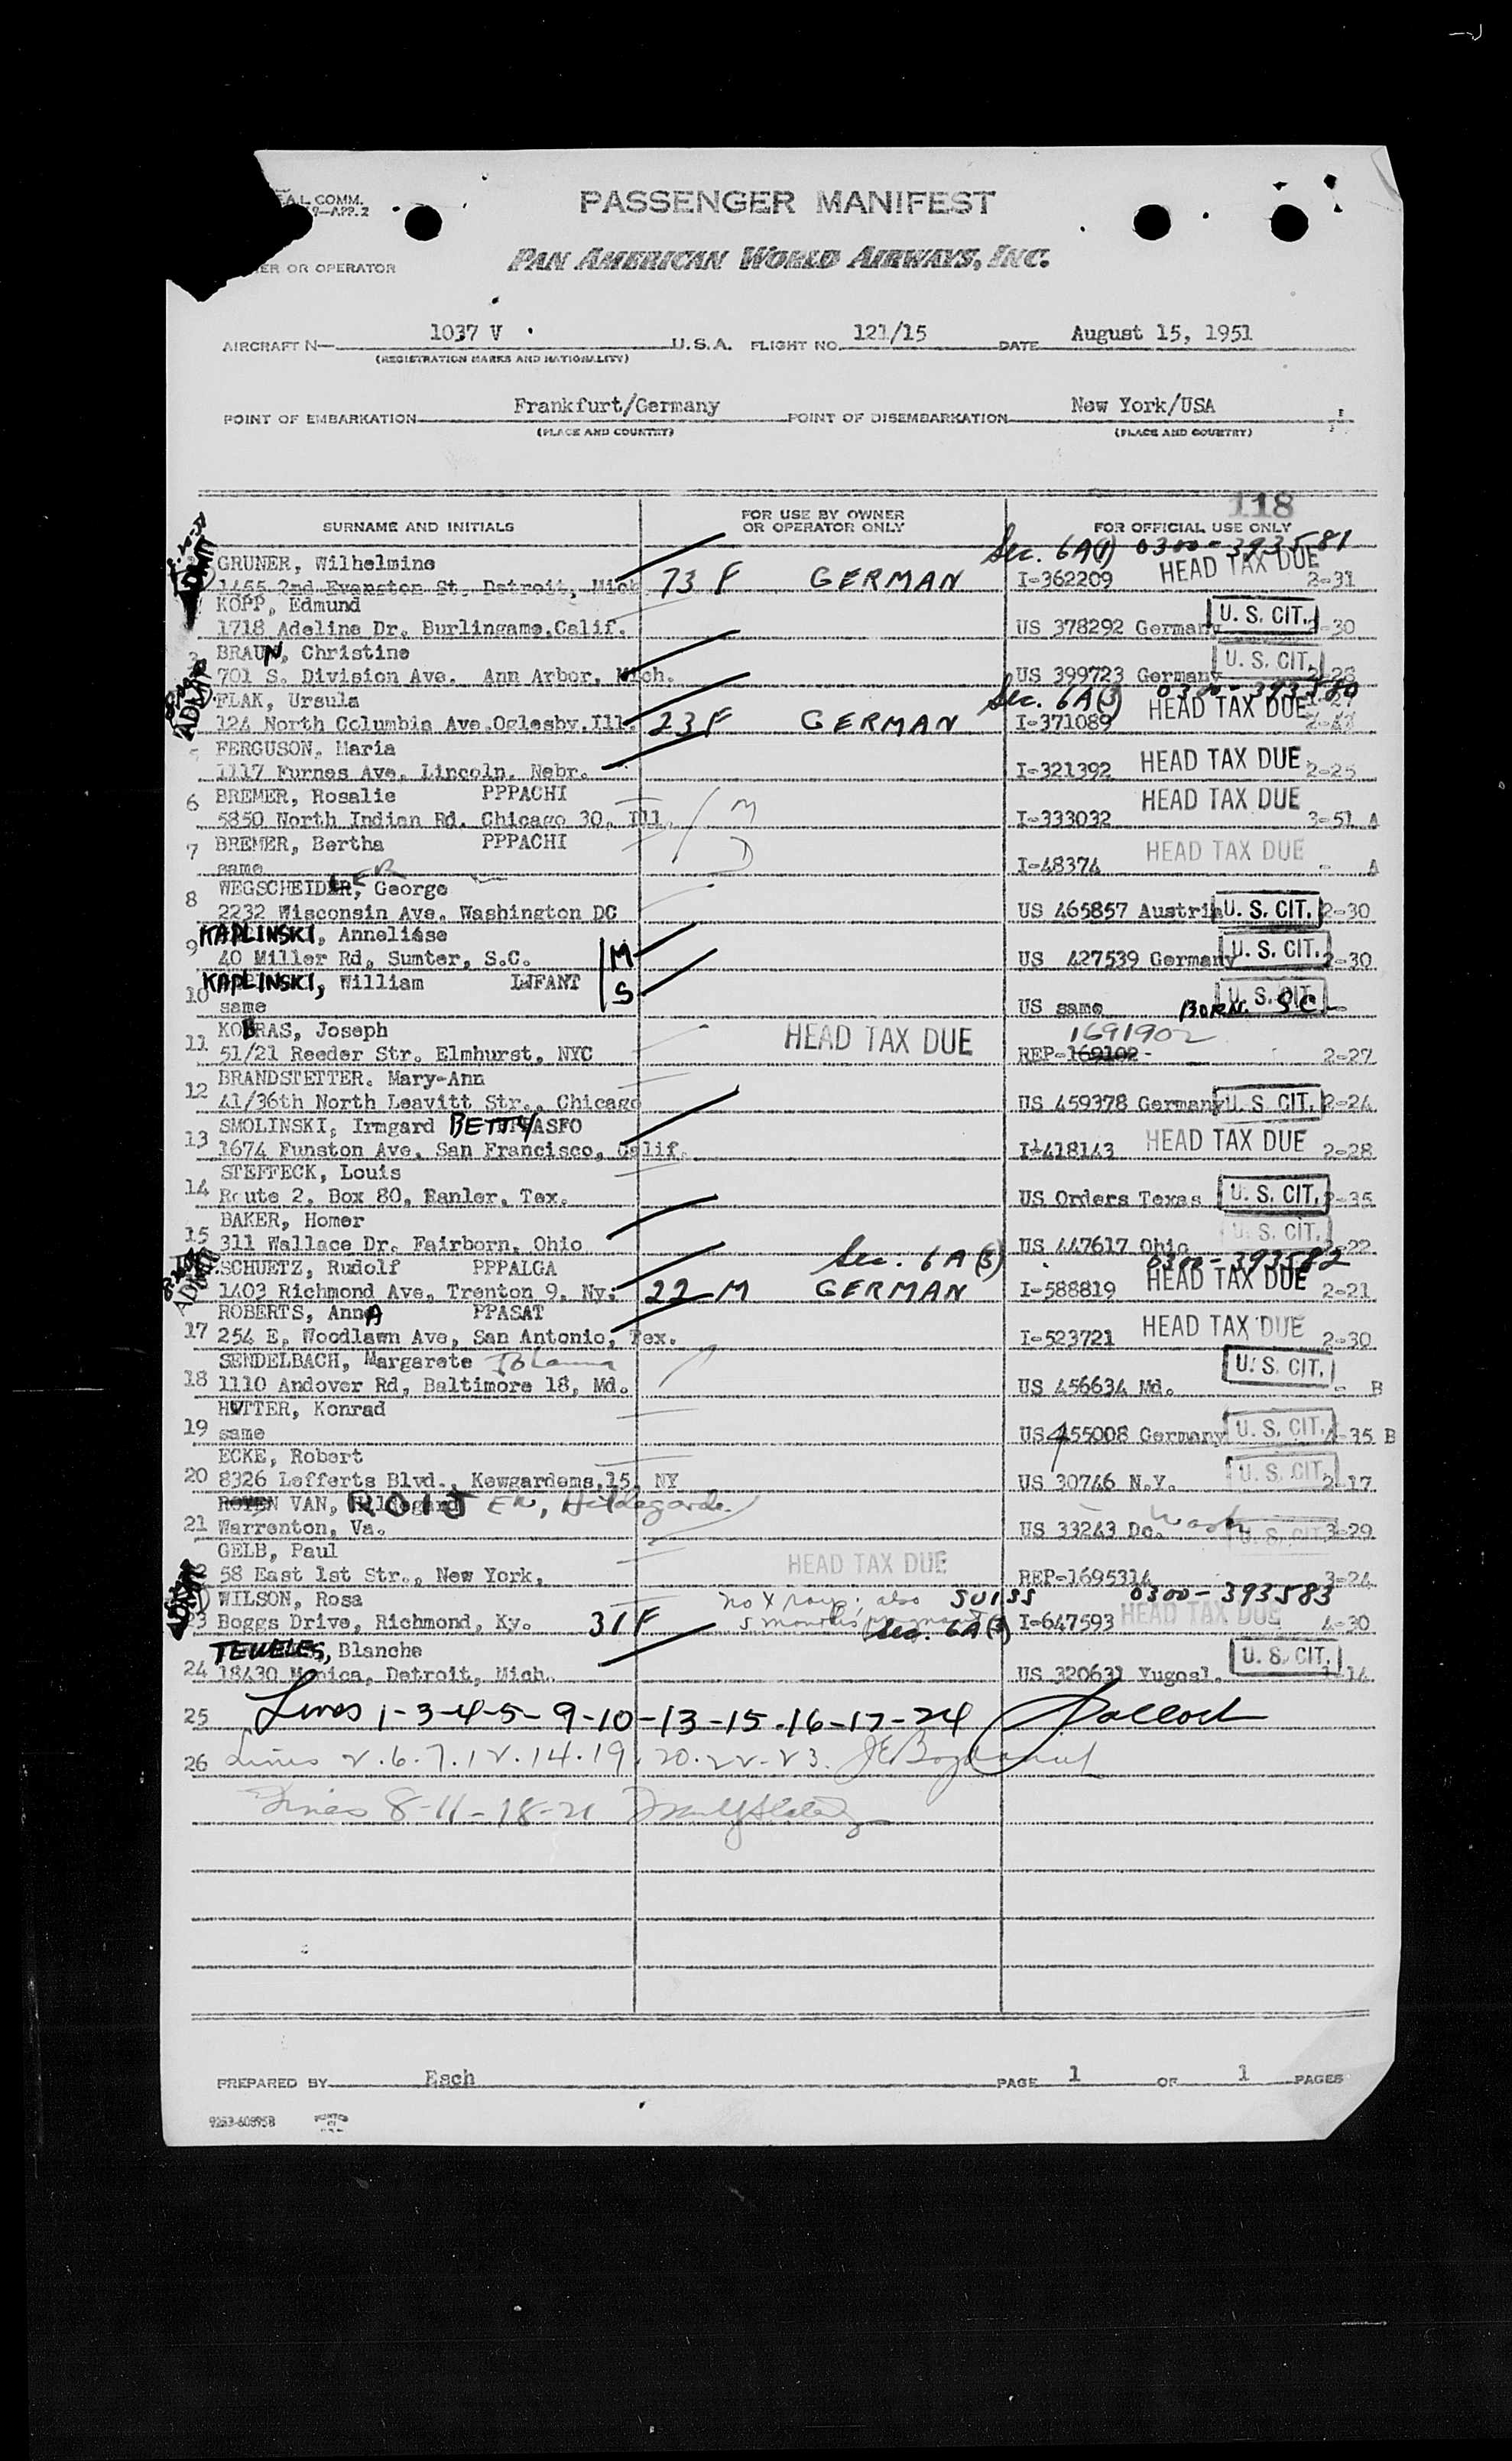 EAL COMM.
9—APP. 2
ER OR OPERATOR
PASSENGER MANIFEST
PAN AMERICAN WORLD AIRWAYS, INC.
AIRCRAFT N— 1037 V U.S.A. FLIGHT NO. 121/15 DATE August 15, 1951
(REGISTRATION MARKS AND NATIONALITY)
POINT OF EMBARKATION Frankfurt/Germany POINT OF DISEMBARKATION New York/USA
(PLACE AND COUNTRY) (PLACE AND COUNTRY)
118
SURNAME AND INITIALS FOR USE BY OWNER OR OPERATOR ONLY FOR OFFICIAL USE ONLY
Sec. 6A(1) 0300-393581
GRUNER, Wilhelmine HEAD TAX DUE
ADMIT 1455 2nd Evanston St. Detroit, Mich 73 F GERMAN I-362209 2-31
KOPP, Edmund U. S. CIT.
1718 Adeline Dr. Burlingame.Calif. US 378292 Germany 2-30
3 BRAUN, Christine U. S. CIT.
701 S. Division Ave. Ann Arbor, Mich. US 399723 Germany 2-28
ADMIT FLAK, Ursula Sec. 6A(3) 0300-393580 HEAD TAX DUE
124 North Columbia Ave.Oglesby.Ill. 23 F GERMAN I-371089
5 FERGUSON, Maria HEAD TAX DUE
1117 Furnas Ave. Lincoln, Nebr. I-321392 2-25
6 BREMER, Rosalie PPPACHI M HEAD TAX DUE
5850 North Indian Rd. Chicago 30, Ill. I-333032 3-51 A
7 BREMER, Bertha PPPACHI D HEAD TAX DUE
same I-48374 - A
8 WEGSCHEIDER, George ER
2232 Wisconsin Ave. Washington DC US 465857 Austria U. S. CIT. 2-30
9 KAPLINSKI, Anneliese
40 Miller Rd, Sumter, S.C. M US 427539 Germany U. S. CIT. 2-30
10 KAPLINSKI, William INFANT S U. S. CIT.
same US same BORN S C -
11 KOBRAS, Joseph HEAD TAX DUE 1691902
51/21 Reeder Str. Elmhurst, NYC REP-169102- 2-27
12 BRANDSTETTER. Mary-Ann
41/36th North Leavitt Str., Chicago US 459378 Germany U. S. CIT. 2-24
13 SMOLINSKI, Irmgard BETTY ASFO HEAD TAX DUE
1674 Funston Ave, San Francisco, Calif. I-418143 2-28
14 STEFFECK, Louis
Route 2, Box 80, Hanler, Tex. US Orders Texas U. S. CIT. 2-35
15 BAKER, Homer U. S. CIT.
311 Wallace Dr. Fairborn, Ohio US 447617 Ohio 2-22
ADMIT SCHUETZ, Rudolf PPPALGA Sec. 6A(3) 0300-393582 HEAD TAX DUE
1403 Richmond Ave, Trenton 9, Ny. 22 M GERMAN I-588819 2-21
17 ROBERTS, AnnA PPASAT HEAD TAX DUE
254 E, Woodlawn Ave, San Antonio, Tex. I-523721 2-30
18 SENDELBACH, Margarete Johanna U. S. CIT.
1110 Andover Rd, Baltimore 18, Md. US 456634 Md. - B
19 HUTTER, Konrad
same US 455008 Germany U. S. CIT. 4-35 B
20 ECKE, Robert
8326 Lefferts Blvd., Kewgardens,15, NY US 30746 N.Y. U. S. CIT. 2-17
21 ROYEN VAN, ROIJEN, Hildegarde
Warrenton, Va. US 33243 Dc. Wash U. S. CIT. 3-29
GELB, Paul HEAD TAX DUE
58 East 1st Str., New York, REP-1695314 3-24
ADMIT WILSON, Rosa no X ray; also SUISS 0300-393583
23 Boggs Drive, Richmond, Ky. 31 F 5 months pregnant Sec. 6A(3) I-647593 HEAD TAX DUE 4-30
TEWELES, Blanche
24 18430 Monica, Detroit, Mich. US 320631 Yugosl. U. S. CIT. 1-14
25 Lines 1-3-4-5-9-10-13-15-16-17-24
26 Lines 2.6.7.12.14.19.20.22.23.
Lines 8-11-18-21
PREPARED BY Esch PAGE 1 OF 1 PAGES
9253-60895B